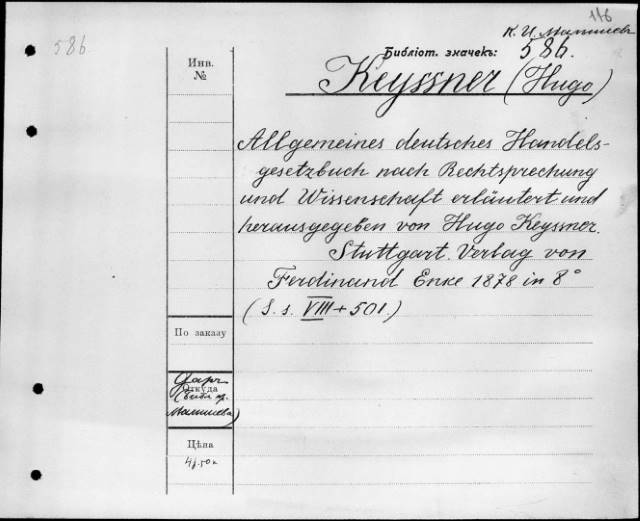 116
586
К. И. Малышев
Библіот. значекъ: 586.
Инв.
№
Keyssner (Hugo)
Allgemeines deutsches Handels-
gesetzbuch nach Rechtsprechung
und Wissenschaft erläutert und
herausgegeben von Hugo Keyssner.
Stuttgart. Verlag von
Ferdinand Enke 1878 in 8°
(S. s. VIII + 501.)
По заказу
Даръ
Откуда
(Библ. пр.
Малышева)
Цѣна